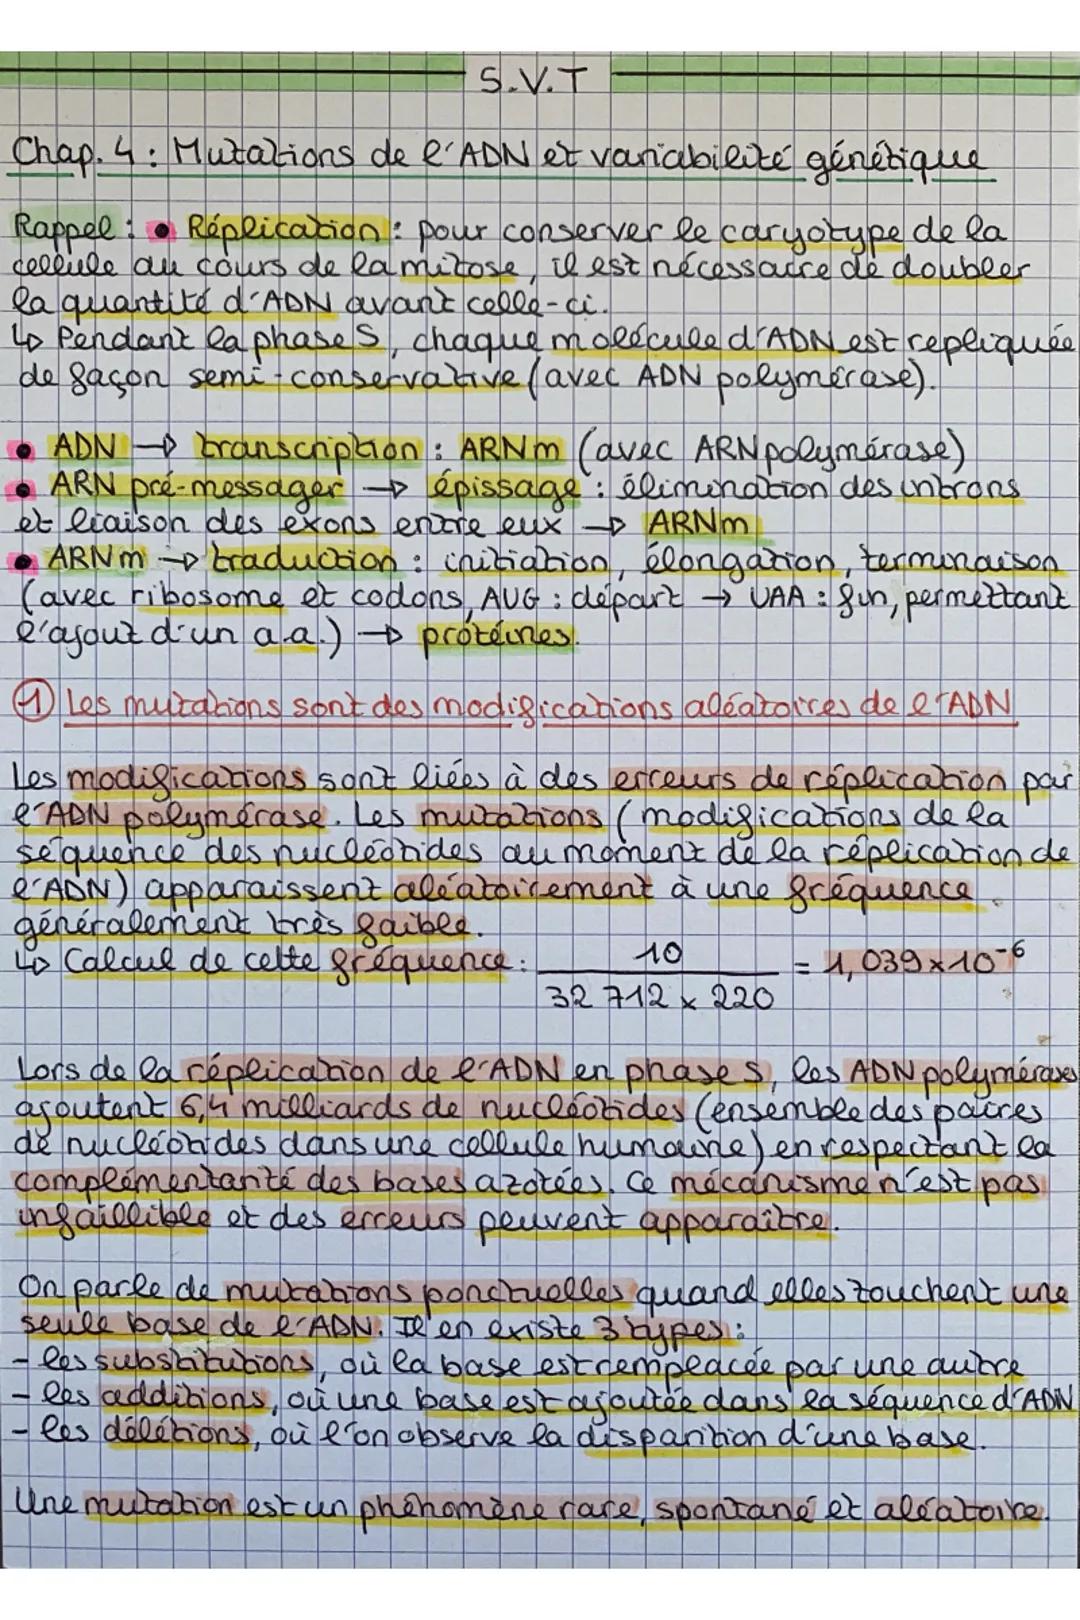 S.V.T
Chap. 4 : Mutations de l'ADN et variabilité génétique
Rappel : • Réplication : pour conserver le caryotype de la
cellule au cours de la mitose, il est nécessaire de doubler
la quantité d'ADN avant celle-ci.
↳ Pendant la phase S, chaque molécule d'ADN est repliquée
de façon semi-conservative (avec ADN polymérase).
• ADN → transcription : ARNm (avec ARN polymérase)
• ARN pré-messager → épissage : élimination des introns
et liaison des exons entre eux → ARNm
• ARNm → traduction : initiation, élongation, terminaison
(avec ribosome et codons, AUG : départ → UAA : fin, permettant
l'ajout d'un a.a.) → protéines.
① Les mutations sont des modifications aléatoires de l'ADN
Les modifications sont liées à des erreurs de réplication par
l'ADN polymérase. Les mutations (modifications de la
séquence des nucléotides au moment de la réplication de
l'ADN) apparaissent aléatoirement à une fréquence
généralement très faible.
↳ Calcul de cette fréquence : 10 / 32 712 x 220 = 1,039 x 10⁻⁶
Lors de la réplication de l'ADN en phase S, les ADN polymérases
ajoutent 6,4 milliards de nucléotides (ensemble des paires
de nucléotides dans une cellule humaine) en respectant la
complémentarité des bases azotées. Ce mécanisme n'est pas
infaillible et des erreurs peuvent apparaître.
On parle de mutations ponctuelles quand elles touchent une
seule base de l'ADN. Il en existe 3 types :
- les substitutions, où la base est remplacée par une autre
- les additions, où une base est ajoutée dans la séquence d'ADN
- les délétions, où l'on observe la disparition d'une base.
Une mutation est un phénomène rare, spontané et aléatoire.